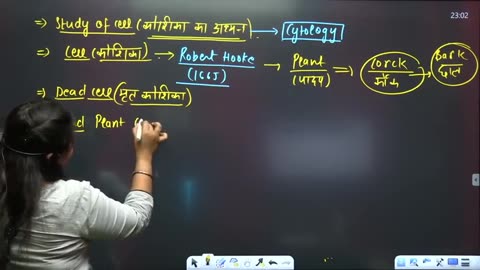 23:02
⇒ Study of cell (कोशिका का अध्ययन) → Cytology
⇒ Cell (कोशिका) → Robert Hooke (1665) → Plant (पादप) ⇒ Corck कॉर्क → Bark छाल
⇒ Dead cell (मृत कोशिका)
Plant